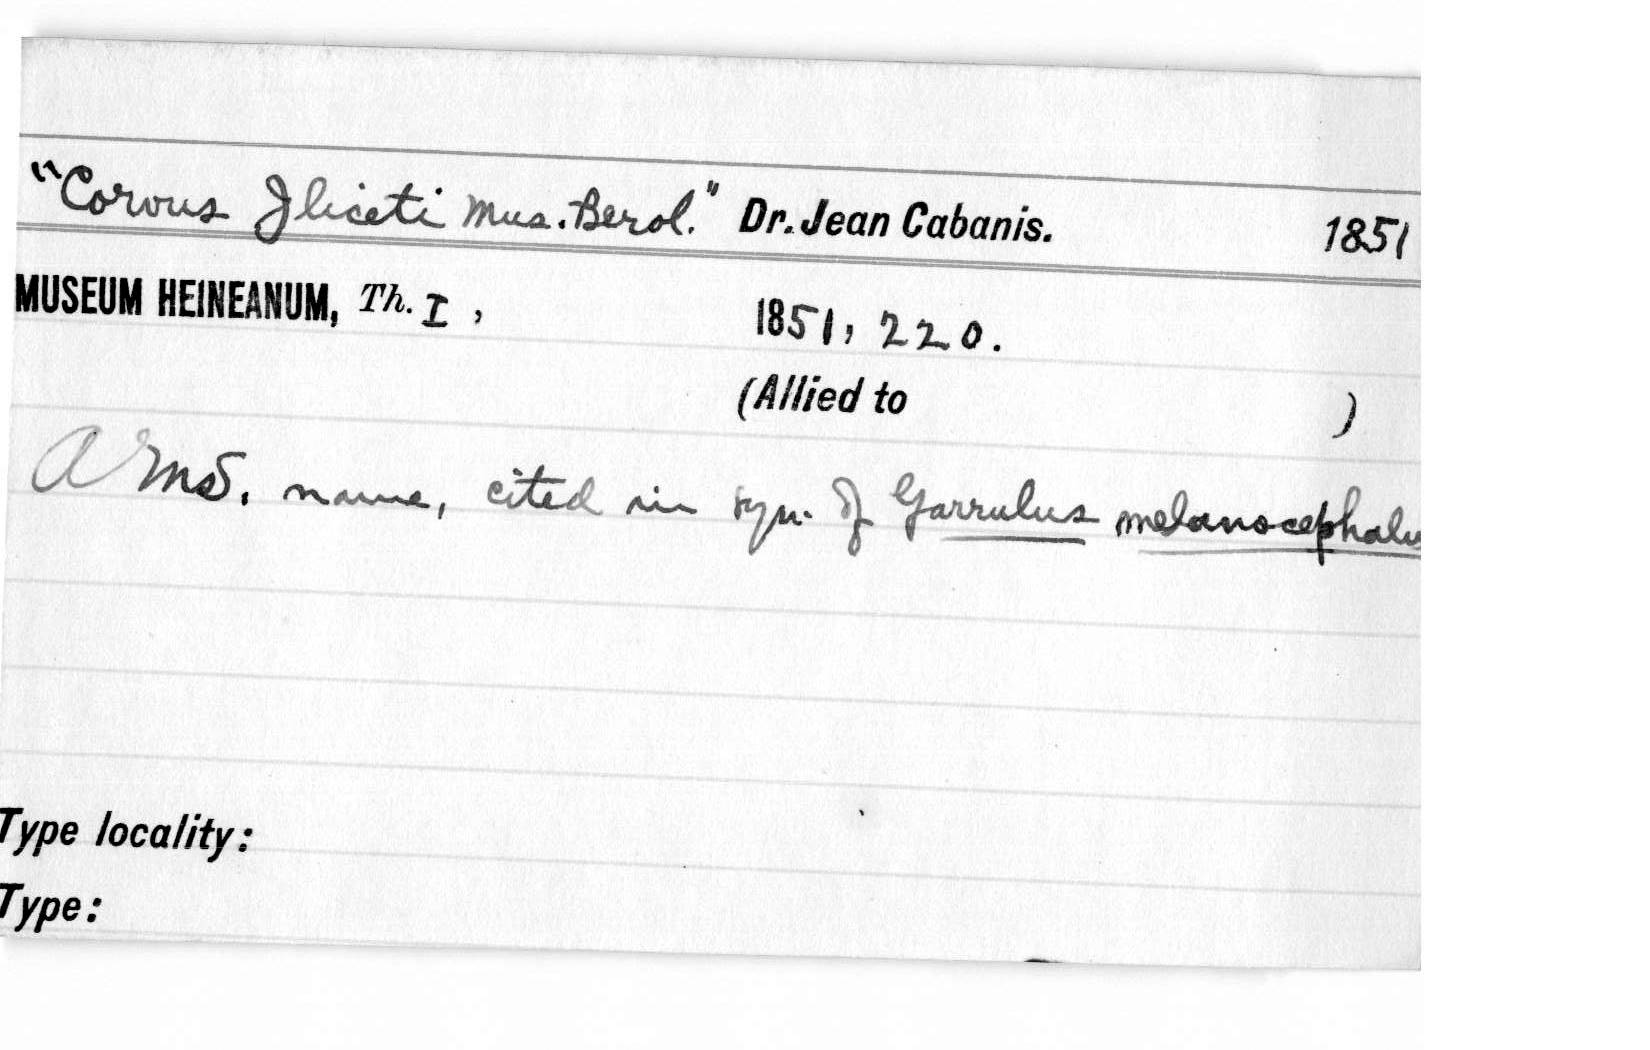 "Corvus Iliceti Mus. Berol." Dr. Jean Cabanis. 1851
MUSEUM HEINEANUM, Th. I, 1851, 220.
(Allied to )
A MS. name, cited in syn. of Garrulus melanocephalu
Type locality:
Type: